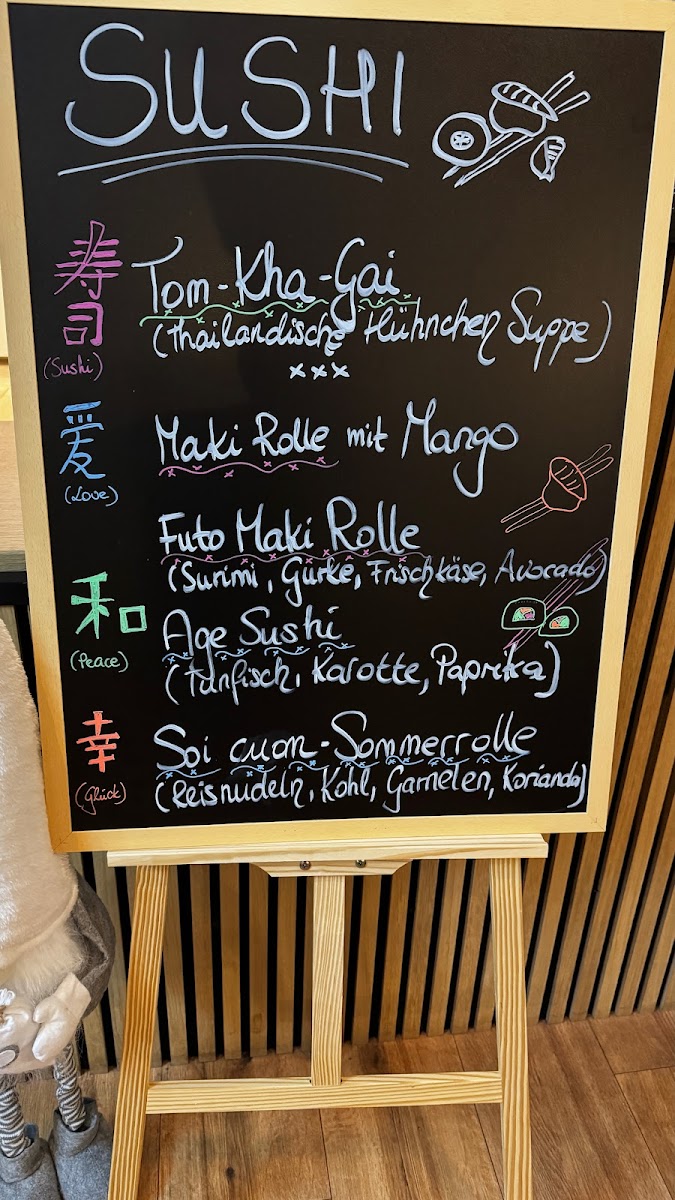 SUSHI
寿司
(Sushi)
Tom-Kha-Gai
(Thailändische Hühnchen Suppe)
xxx
爱
(Love)
Maki Rolle mit Mango
Futo Maki Rolle
(Surimi, Gurke, Frischkäse, Avocado)
和
(Peace)
Age Sushi
(Tunfisch, Karotte, Paprika)
幸
(Glück)
Soi cuon-Sommerrolle
(Reisnudeln, Kohl, Garnelen, Koriander)